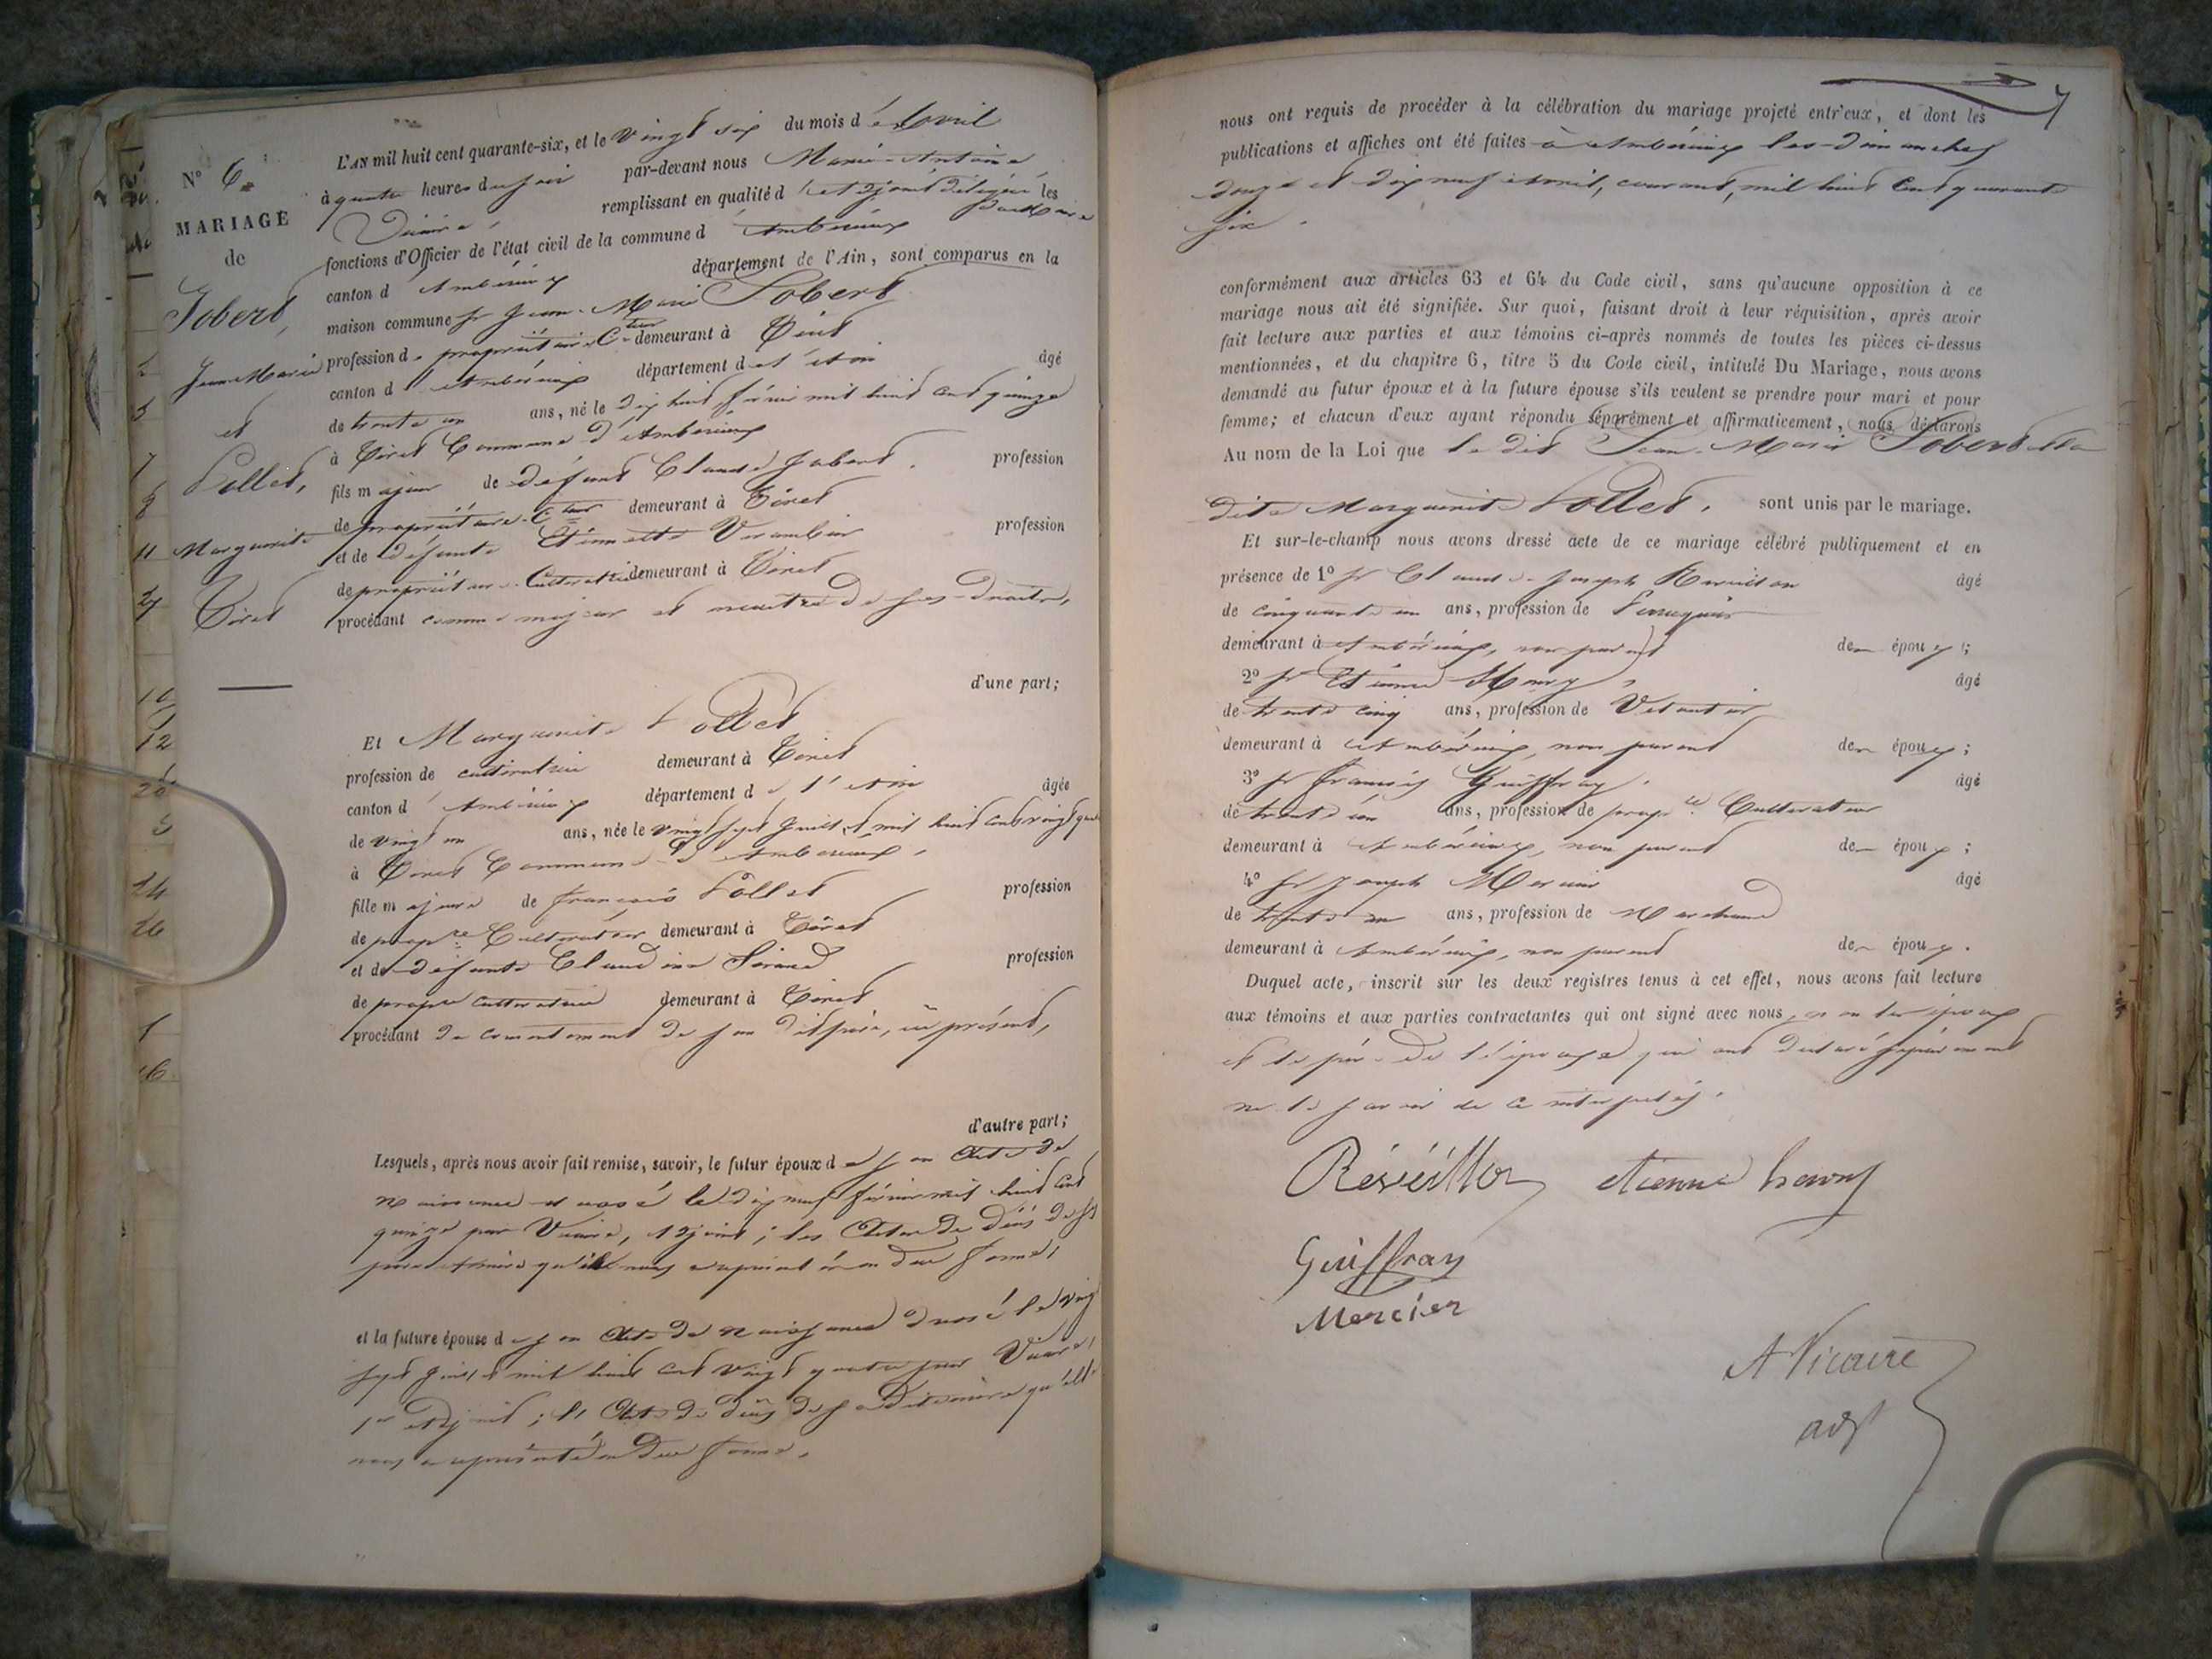 N° 6.
MARIAGE
de
Jobert,
Jean Marie
et
Pollet,
Marguerite
Tiret
L'AN mil huit cent quarante-six, et le vingt six du mois d'avril
à quatre heures du soir par-devant nous Marie-Antoine
remplissant en qualité d'adjoint délégué les
fonctions d'Officier de l'état civil de la commune d'Ambérieux
canton d'Ambérieux département de l'Ain, sont comparus en la
maison commune Sr Jean-Marie Jobert
profession de propriétaire Cteur demeurant à Tiret
canton d'Ambérieux département de l'Ain âgé
de trente un ans, né le dix huit février mil huit cent quinze
à Tiret Commune d'Ambérieux
fils majeur de défunt Claude Jobert. profession
de propriétaire Cteur demeurant à Tiret
et de défunte Etiennette profession
de propriétaire Cultivatrice demeurant à Tiret
procédant comme majeur et maître de ses droits,
d'une part;
Et Marguerite Pollet
profession de cultivatrice demeurant à Tiret
canton d'Ambérieux département de l'Ain âgée
de vingt un ans, née le vingt sept juillet mil huit cent vingt
à Tiret Commune d'Ambérieux,
fille majeure de François Pollet profession
de propre Cultivateur demeurant à Tiret
et de défunte Claudine profession
de propre cultivatrice demeurant à Tiret
procédant du consentement de son dit père, ici présent,
d'autre part;
Lesquels, après nous avoir fait remise, savoir, le futur époux de son Acte de
naissance dressé le dix neuf février mil huit cent
quinze par adjoint; les Actes de décès de ses
père et mère qu'il nous a représentés en due forme,
et la future épouse de son Acte de naissance dressé le vingt
sept juillet mil huit cent vingt quatre par
1er Adjoint; l'Acte de décès de sa dite mère qu'elle
nous a représenté en due forme.
7
nous ont requis de procéder à la célébration du mariage projeté entr'eux, et dont les
publications et affiches ont été faites à Ambérieux les dimanches
douze et dix neuf avril, courant, mil huit cent quarante
six.
conformément aux articles 63 et 64 du Code civil, sans qu'aucune opposition à ce
mariage nous ait été signifiée. Sur quoi, faisant droit à leur réquisition, après avoir
fait lecture aux parties et aux témoins ci-après nommés de toutes les pièces ci-dessus
mentionnées, et du chapitre 6, titre 5 du Code civil, intitulé Du Mariage, nous avons
demandé au futur époux et à la future épouse s'ils veulent se prendre pour mari et pour
femme; et chacun d'eux ayant répondu séparément et affirmativement, nous déclarons
Au nom de la Loi que le dit Jean-Marie Jobert et la
dite Marguerite Pollet, sont unis par le mariage.
Et sur-le-champ nous avons dressé acte de ce mariage célébré publiquement et en
présence de 1° Sr Claude-Joseph âgé
de cinquante un ans, profession de Perruquier
demeurant à Ambérieux, non parent des époux;
2° Sr Etienne âgé
de trente cinq ans, profession de
demeurant à Ambérieux, non parent des époux;
3° Sr François Guiffray. âgé
de trente un ans, profession de propre Cultivateur
demeurant à Ambérieux, non parent des époux;
4° Sr Joseph Mercier âgé
de trente un ans, profession de Marchand
demeurant à Ambérieux, non parent des époux.
Duquel acte, inscrit sur les deux registres tenus à cet effet, nous avons fait lecture
aux témoins et aux parties contractantes qui ont signé avec nous, non les époux
et le père de l'épouse qui ont déclaré séparément
ne le savoir de ce interpellés.
Réveillon
Guiffray
Mercier
A Vicaire
adj